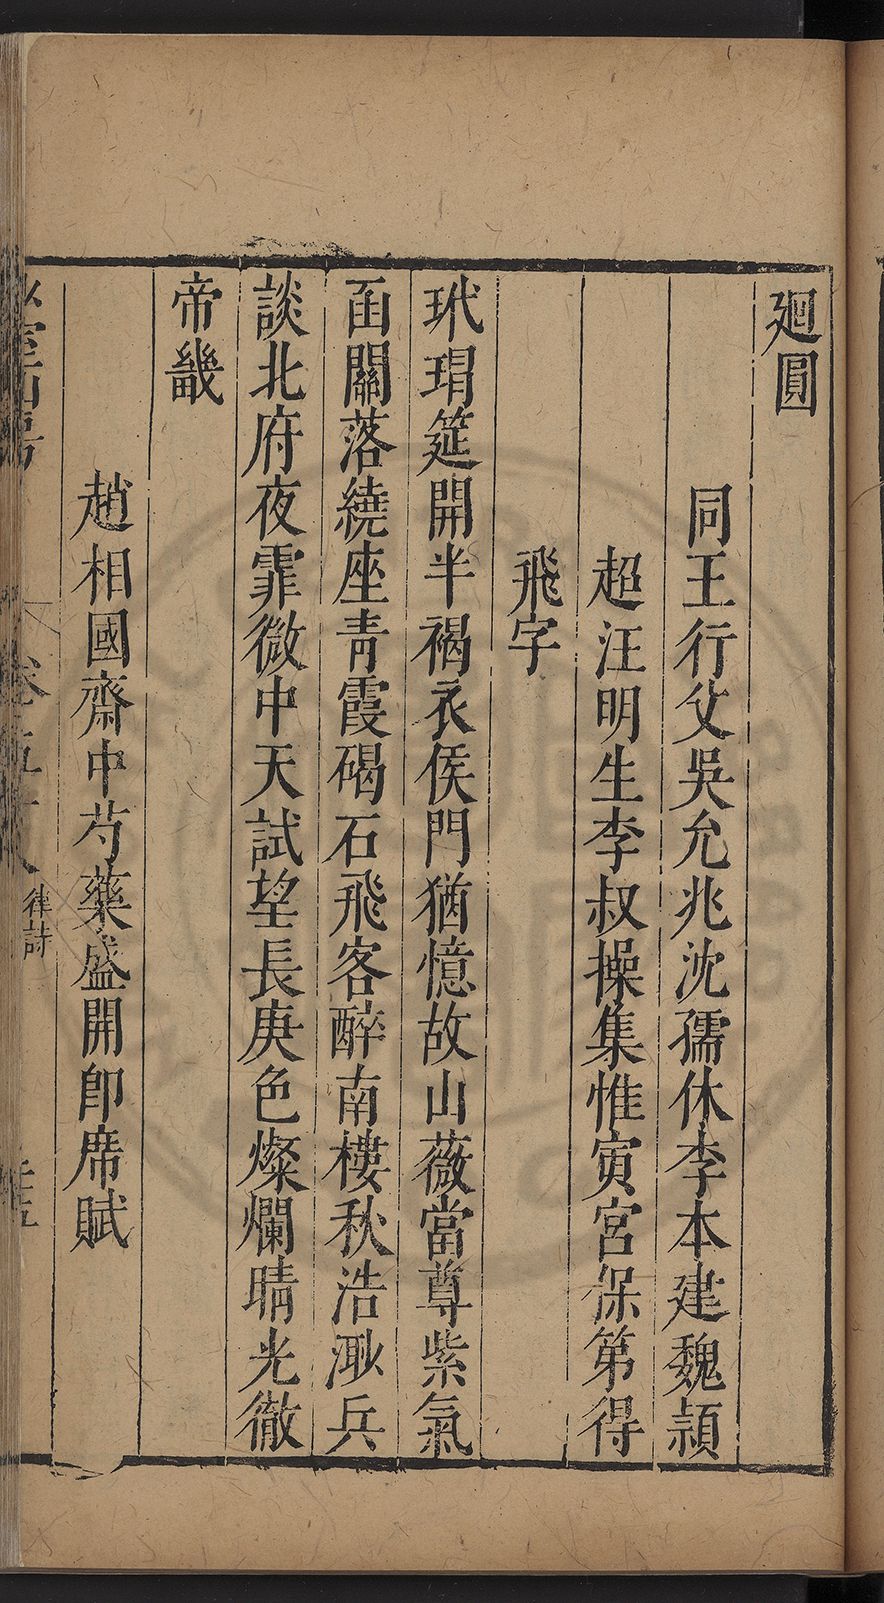 廻圓
同王行父吳允兆沈孺休李本建魏顥
超汪明生李叔操集惟寅宮保第得
飛字
玳瑁筵開半褐衣侯門猶憶故山薇當尊紫氣
函關落繞座青霞碣石飛客醉南樓秋浩渺兵
談北府夜霏微中天試望長庚色燦爛晴光徹
帝畿
趙相國齋中芍藥盛開卽席賦
律詩